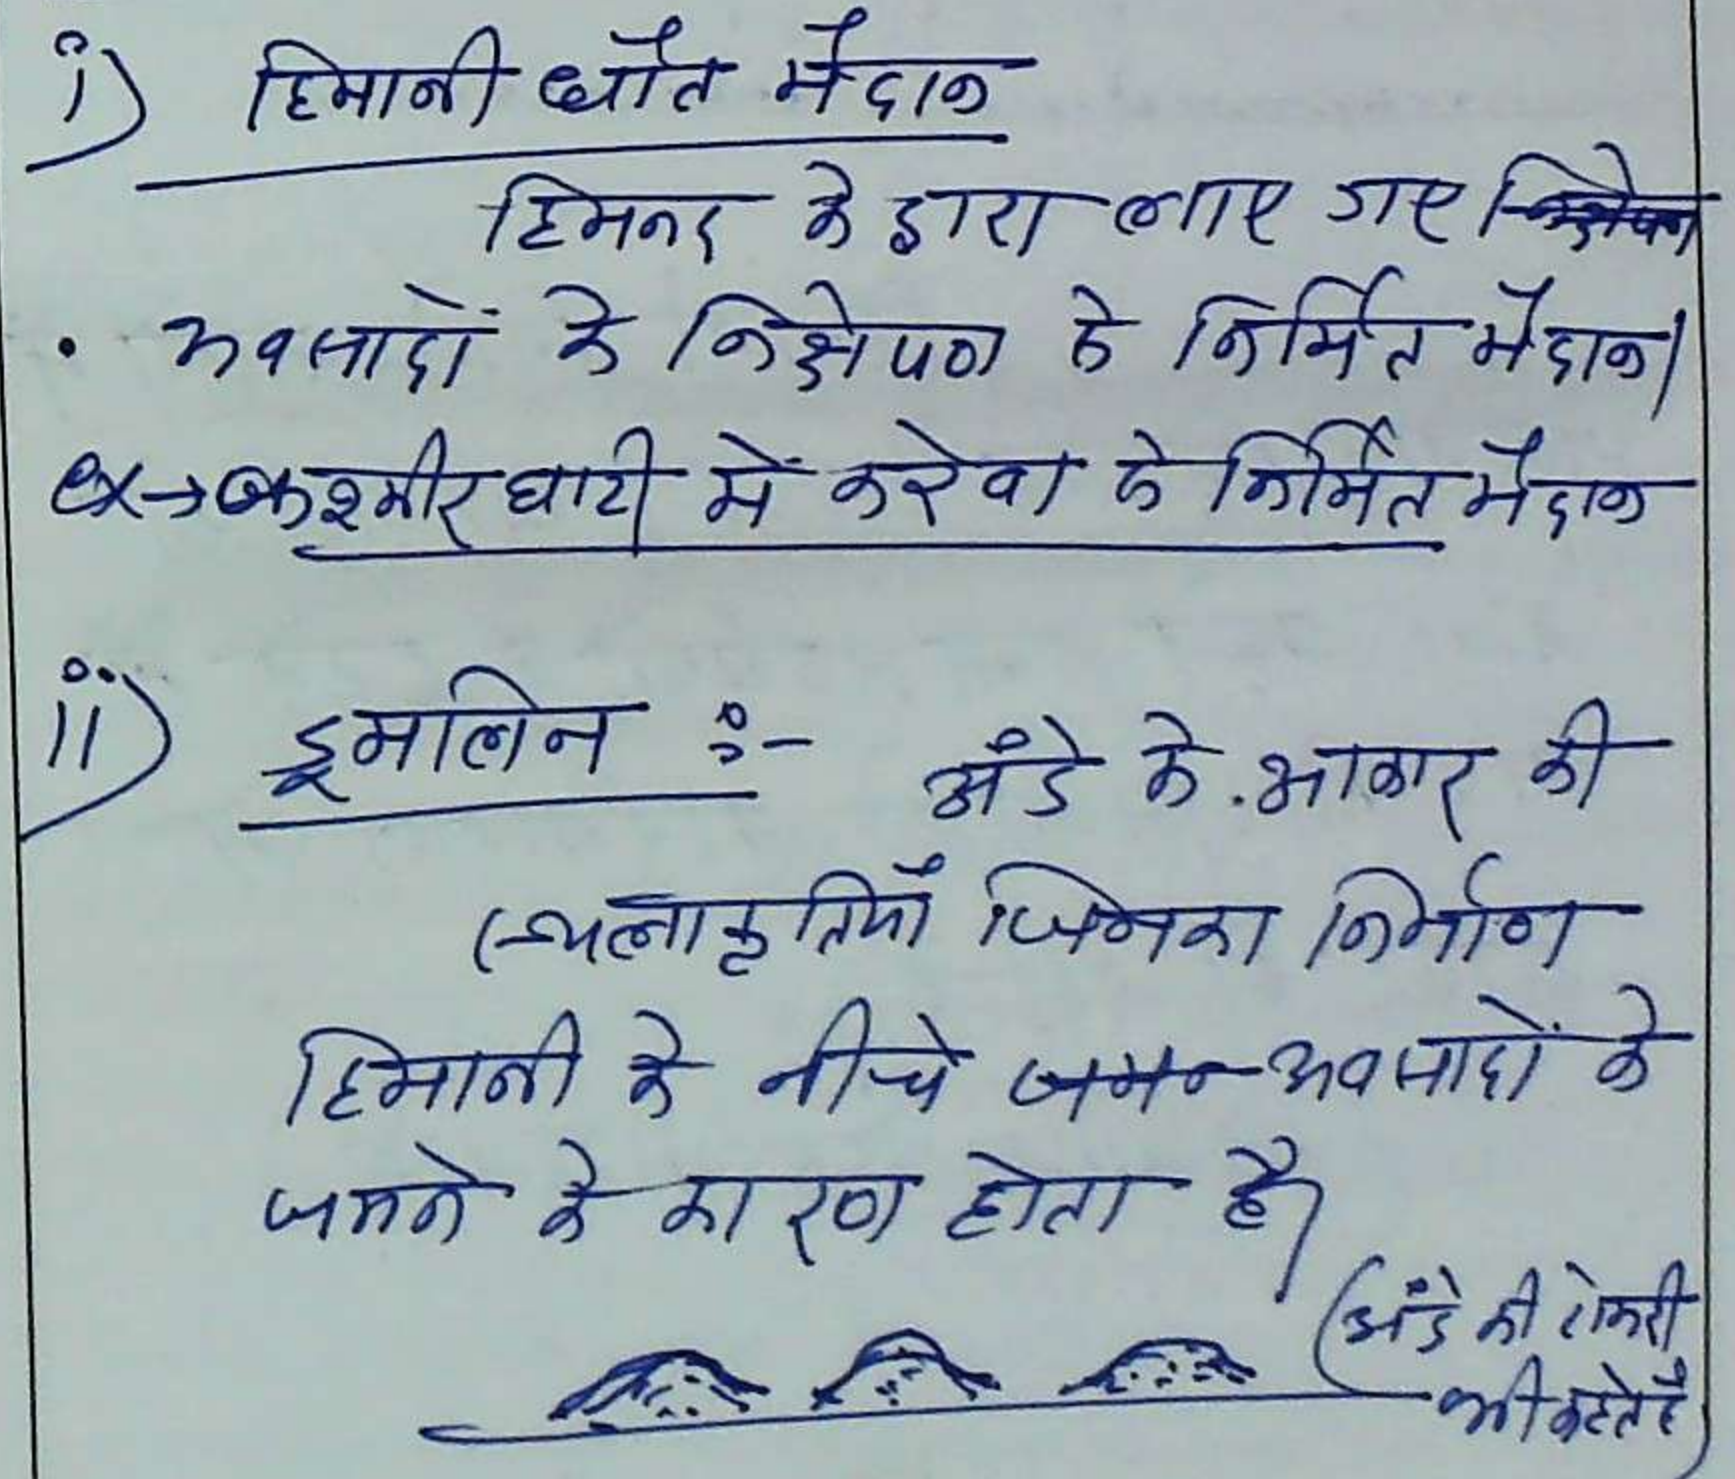 i) हिमानी धौत मैदान
हिमनद के द्वारा लाए गए निक्षेपण
• अवसादों के निक्षेपण से निर्मित मैदान।
ex→ कश्मीर घाटी में करेवा से निर्मित मैदान
ii) ड्रमलिन :-
अंडे के आकार की
स्थलाकृतियाँ जिनका निर्माण
हिमानी के नीचे जमन अवसादों के
जमने के कारण होता है।
(अंडे की टोकरी
भी कहते है)